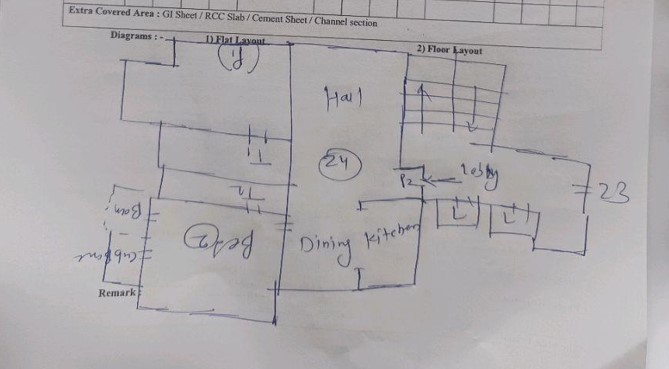 Extra Covered Area : GI Sheet / RCC Slab / Cement Sheet / Channel section
Diagrams :- 1) Flat Layout 2) Floor Layout
Hall
24
lobby
P2
23
T1
T2
L L
Bed2
Dining Kitchen
Remark: